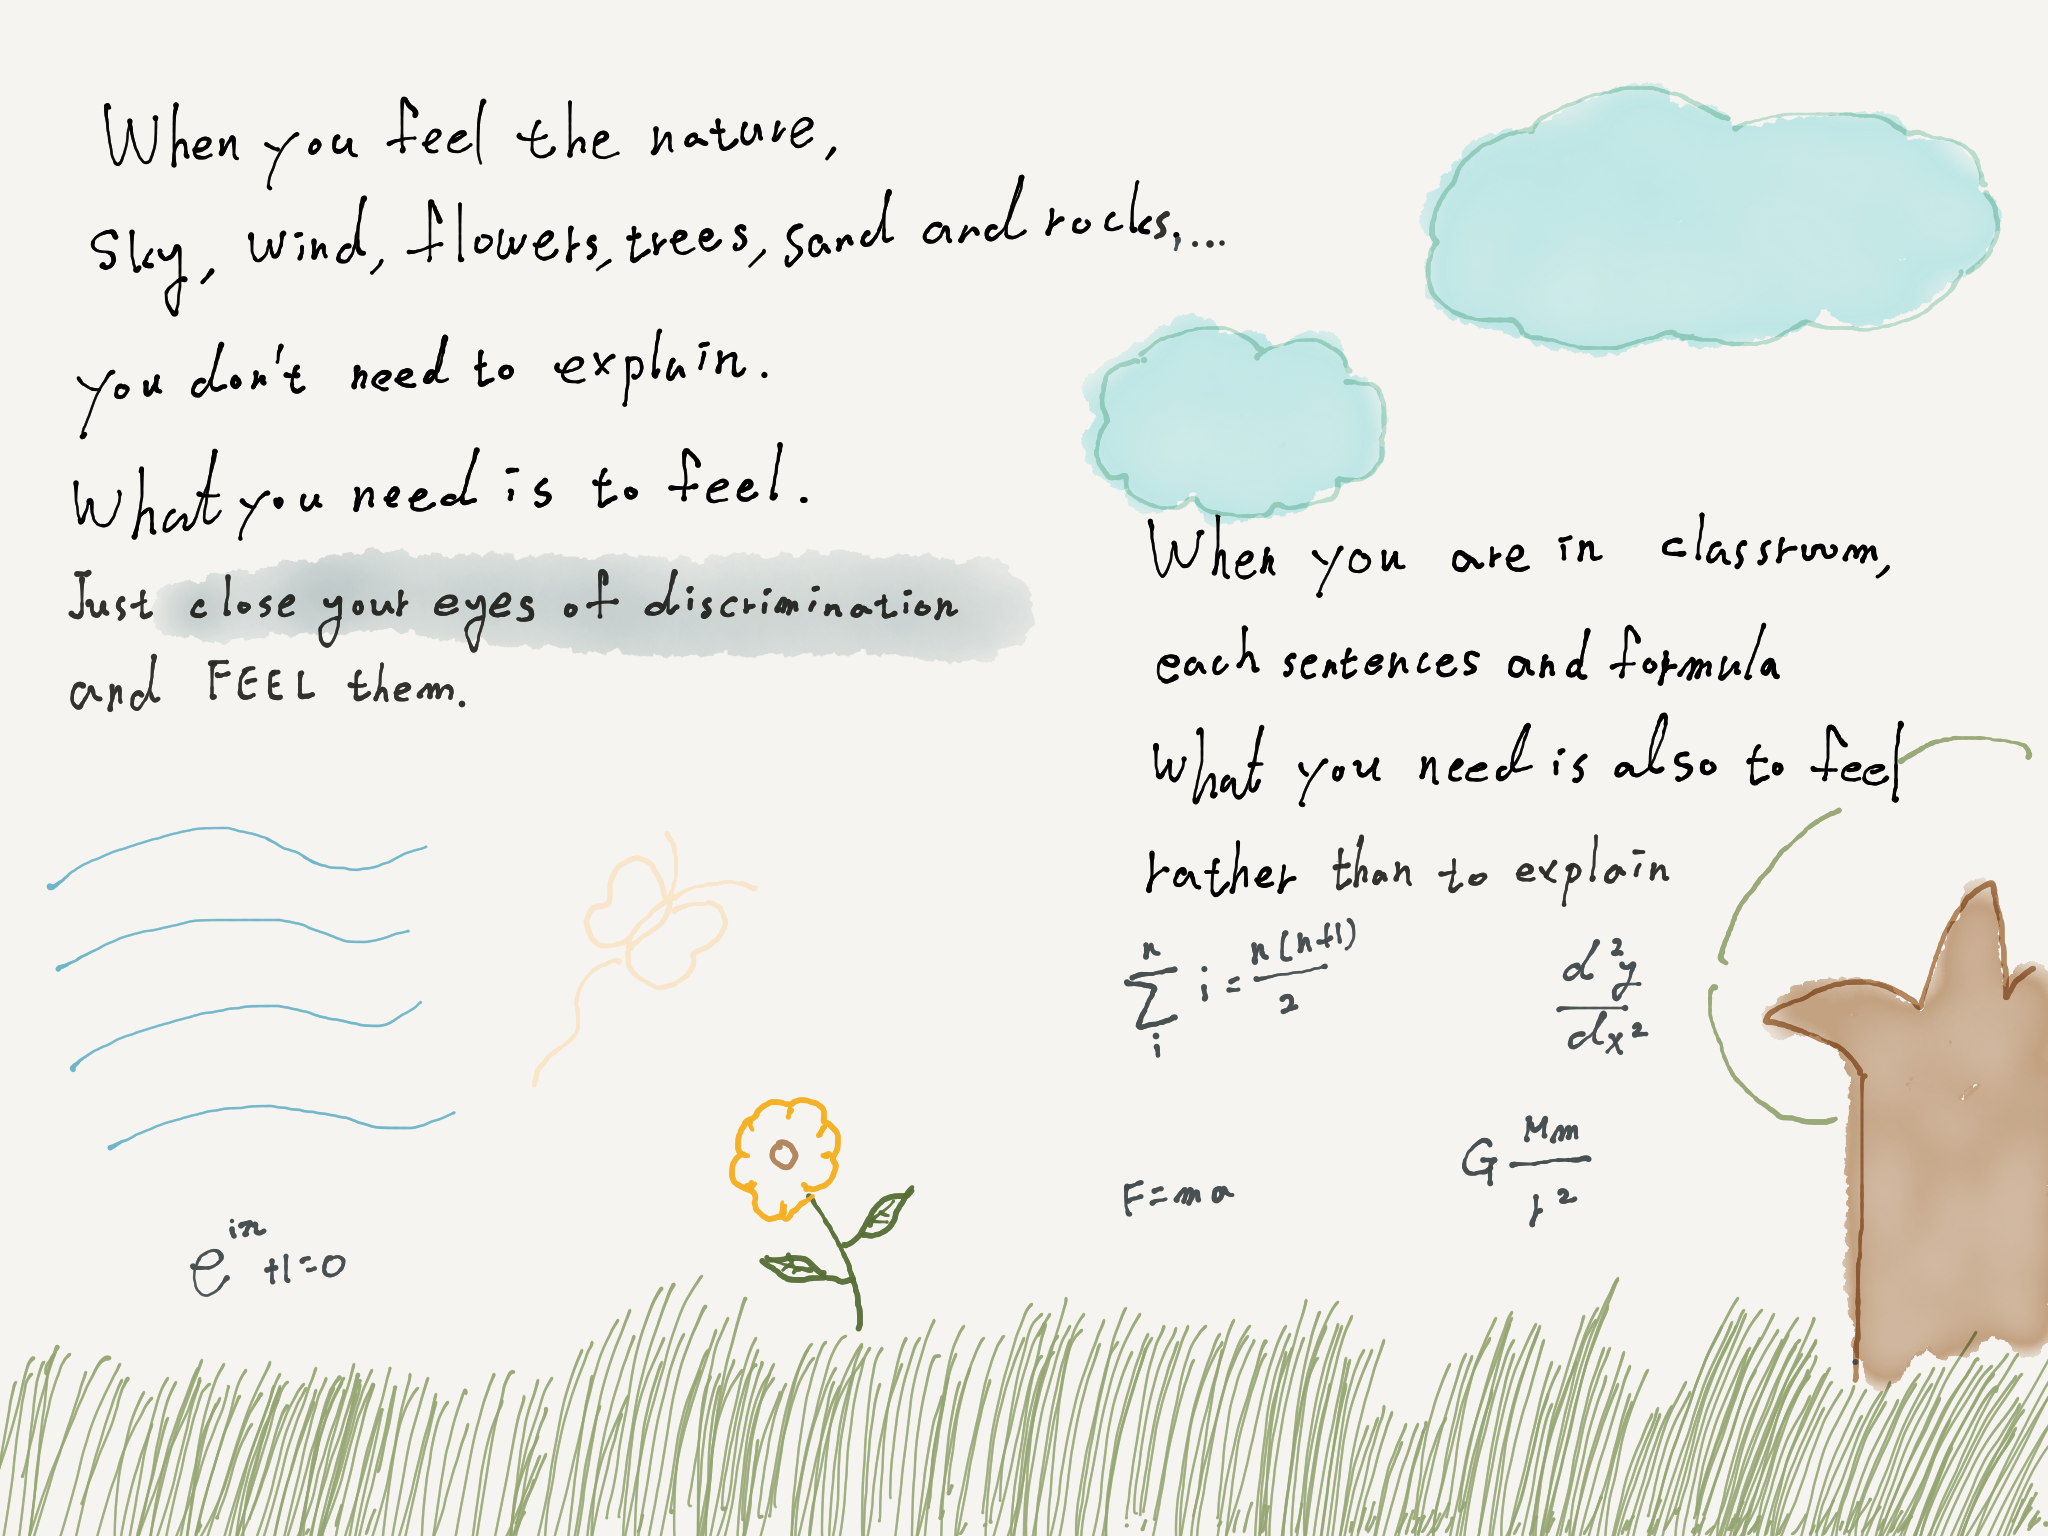 When you feel the nature,
Sky, wind, flowers, trees, sand and rocks,...
you don't need to explain.
What you need is to feel.
Just close your eyes of discrimination
and FEEL them.
When you are in classroom,
each sentences and formula
what you need is also to feel
rather than to explain
n
∑ i = n(n+1)/2
i
d²y/dx²
F=ma
G Mm/r²
e^iπ +1=0